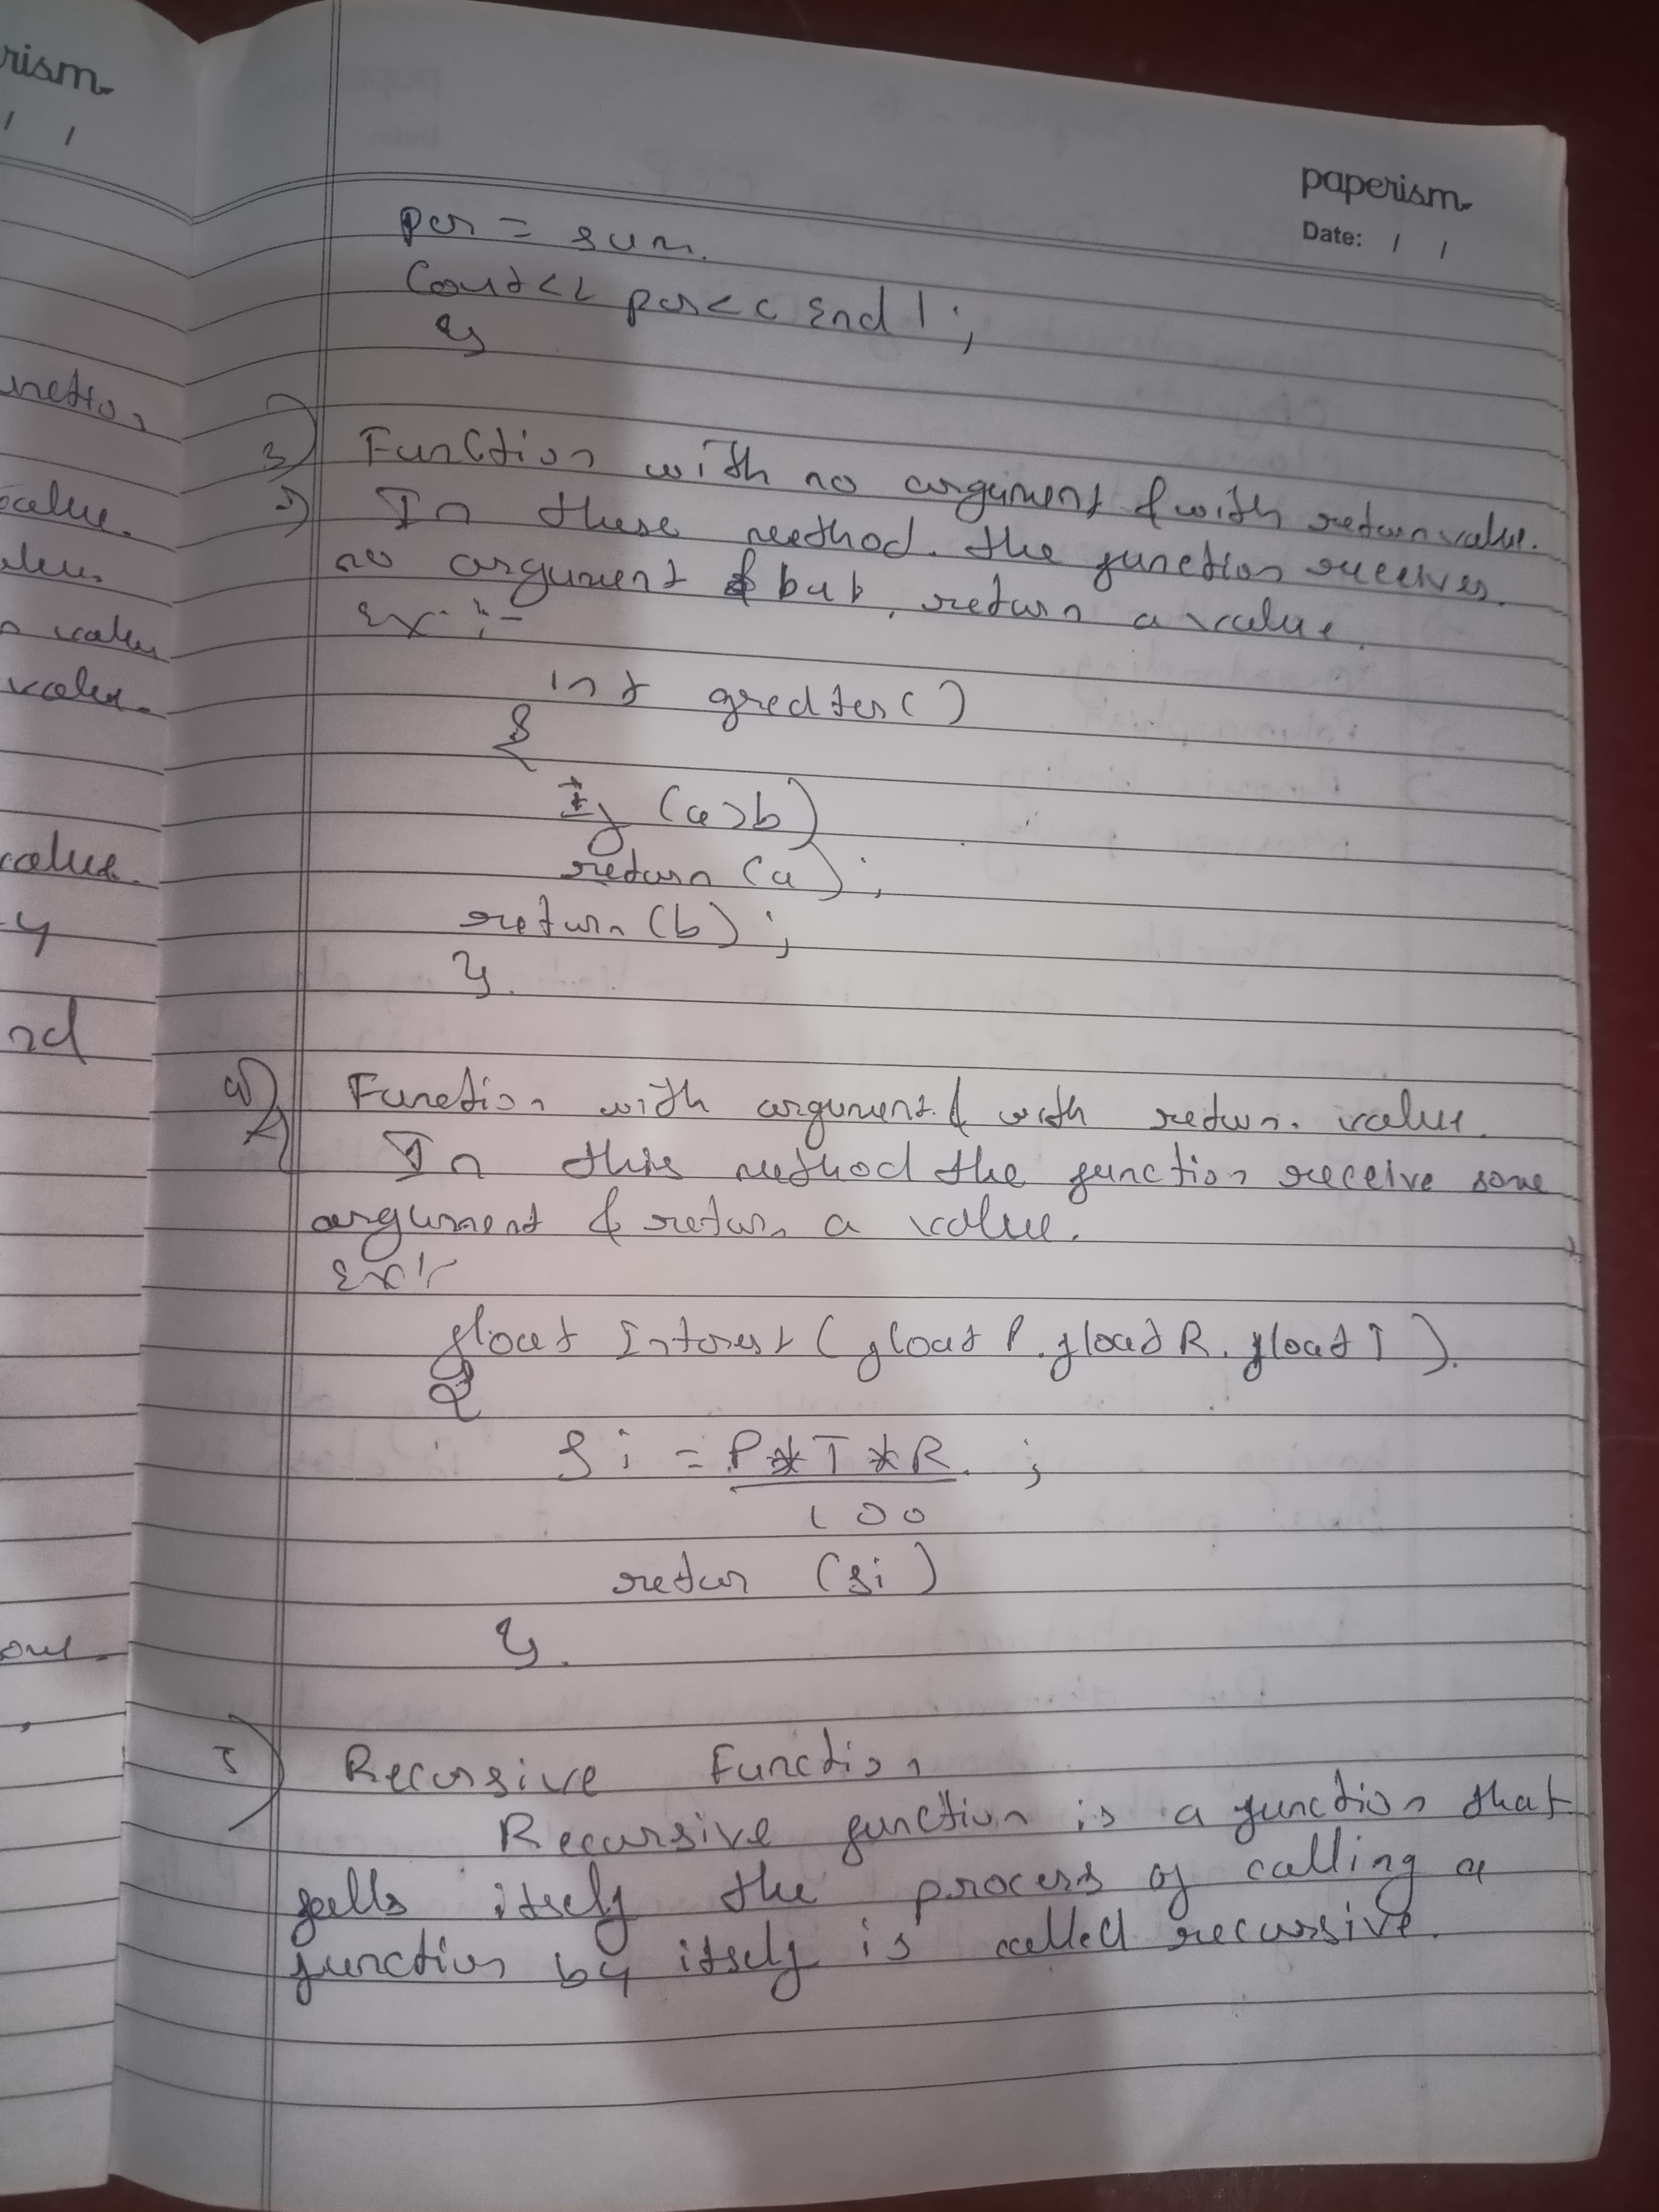 rism
/ /
nction
value.
value.
value.
y
nd
paperism
Date: / /
per = sum.
Cout<< per<< Endl;
}
3) Function with no argument & with return value.
In these method. the function receives.
no argument but, return a value.
Ex :-
int greater()
{
If (a>b)
return (a);
return (b);
}.
4) Function with argument & with return. value.
In this method the function receive some
argument & return a value.
Ex :-
float Interest (float P, float R, float T).
{
Si = P*T*R ;
100
retur (si)
}.
5) Recursive Function
Recursive function is a function that
calls itself the process of calling a
function by itself is called recursive.